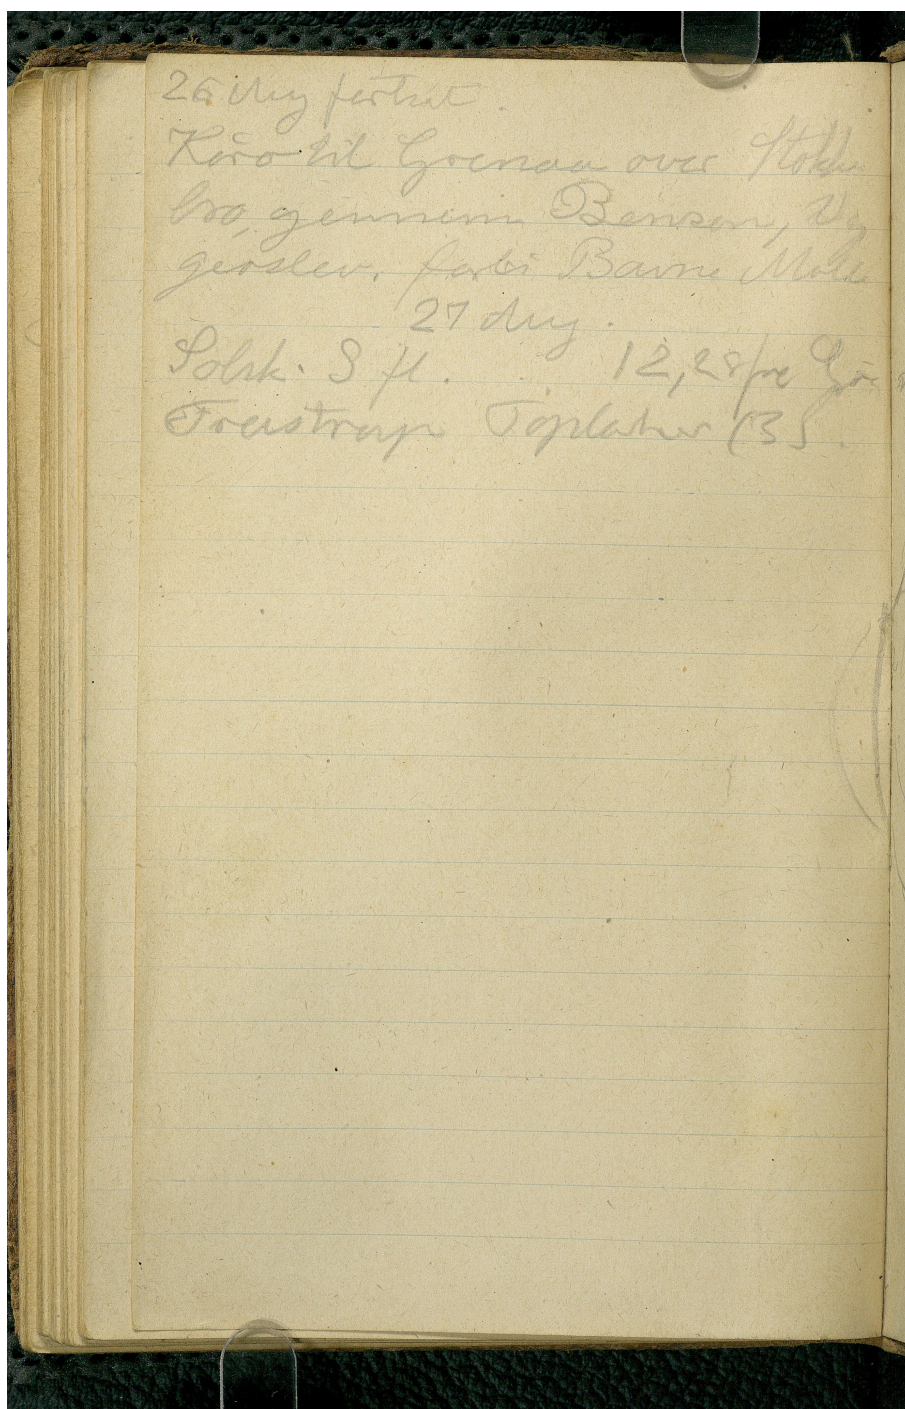 26 Aug fortsat.
Køro til Grenaa over Stokke
bro, gennem Benzon, Veg
gerslev, forbi Bavne Mølle
27 Aug.
Solsk. S fl. 12,28 fre Gre
Trustrup Toplærker (3).